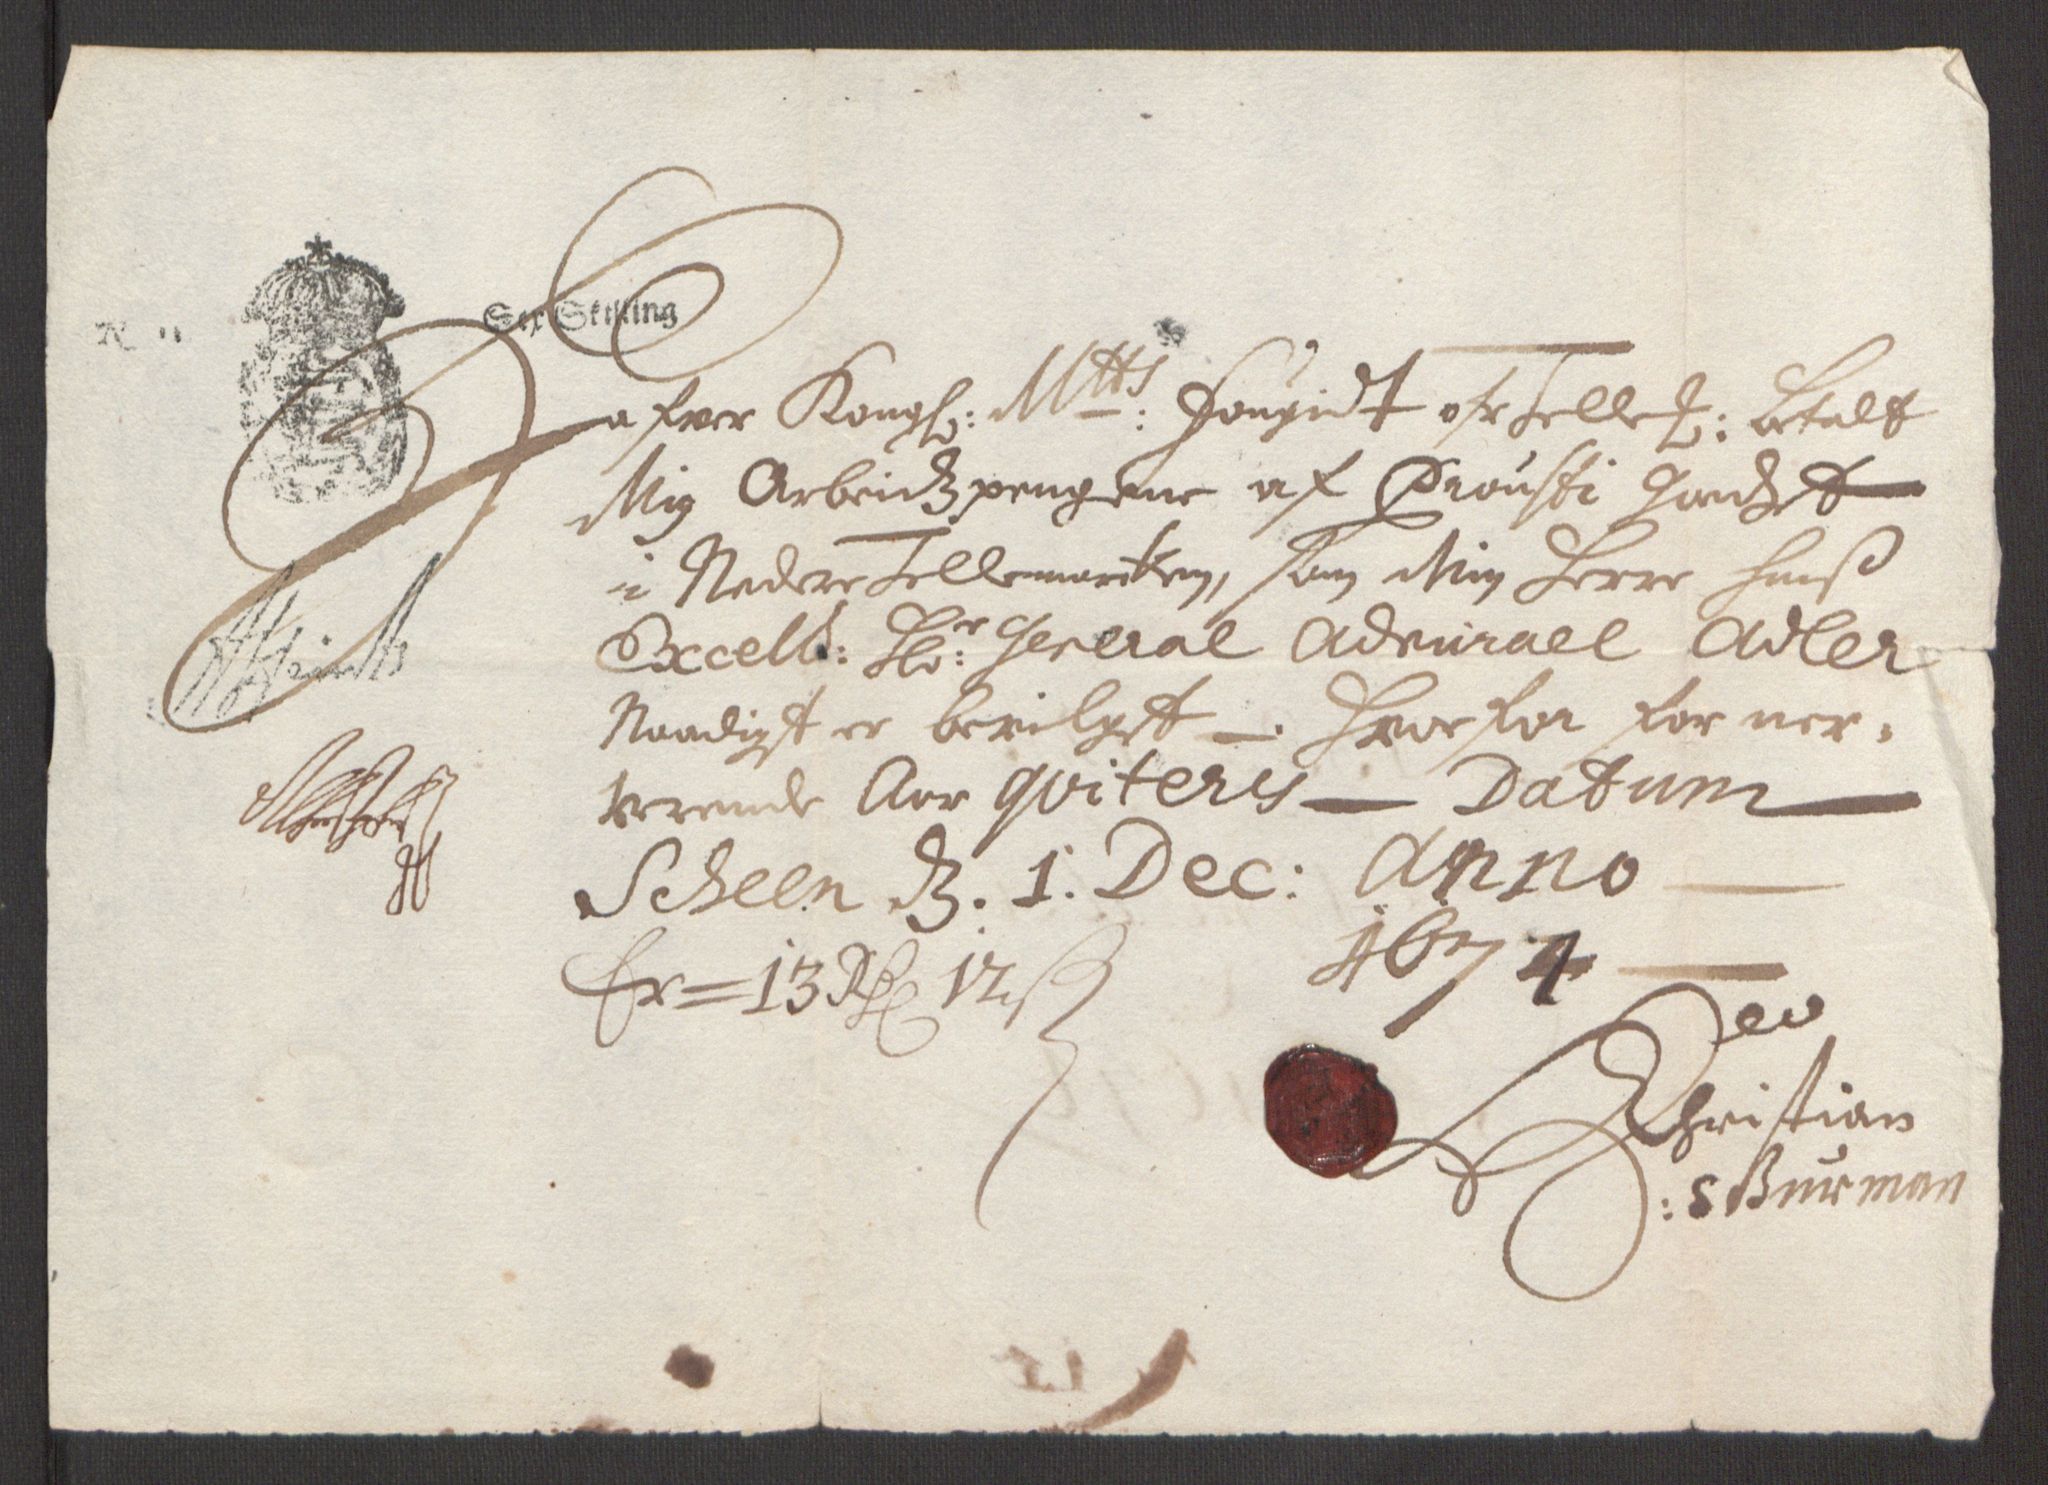 Sex Skilling
Hafver Kongl: Mtts: Fougidt ofr Tellem: betalt
Mig Arbeidspengene af Prousti Gordet
i Nedere Tellemarken, som Min Herre Hans
Excell: Hr: General Admirael Adler
Naadigst er bevilget — Hvorfor for ner-
verende Aar qviteris — Datum
Scheen ds. 1. Dec: Anno —
1674 —
Er = 13 Rdr 12 ß
Christian
:s Buurman